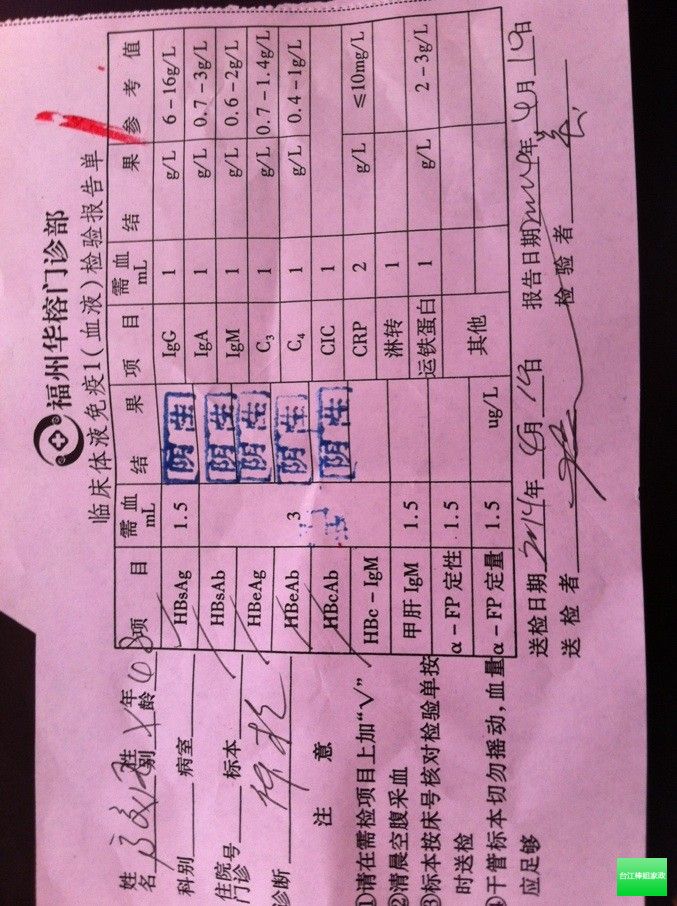 福州华榕门诊部
临床体液免疫1(血液)检验报告单
姓名 性别 年龄
科别 病室
住院门诊号 标本
诊断 体检
注 意
①请在需检项目上加“√”
②清晨空腹采血
③标本按床号核对检验单按时送检
④干管标本切勿摇动,血量应足够
项 目 需血mL 结 果 项 目 需血mL 结 果 参 考 值
HBsAg 1.5 阴性 IgG 1 g/L 6-16g/L
HBsAb 3 阴性 IgA 1 g/L 0.7-3g/L
HBeAg 阴性 IgM 1 g/L 0.6-2g/L
HBeAb 阴性 C₃ 1 g/L 0.7-1.4g/L
HBcAb 阴性 C₄ 1 g/L 0.4-1g/L
HBc-IgM CIC 1
甲肝 IgM 1.5 CRP 2 g/L ≤10mg/L
α-FP 定性 1.5 淋转 1
α-FP 定量 1.5 ug/L 运铁蛋白 1 g/L 2-3g/L
其他
送检日期 2014年 月 日 报告日期 年 月 日
送检者 检验者
台江棒姐家政